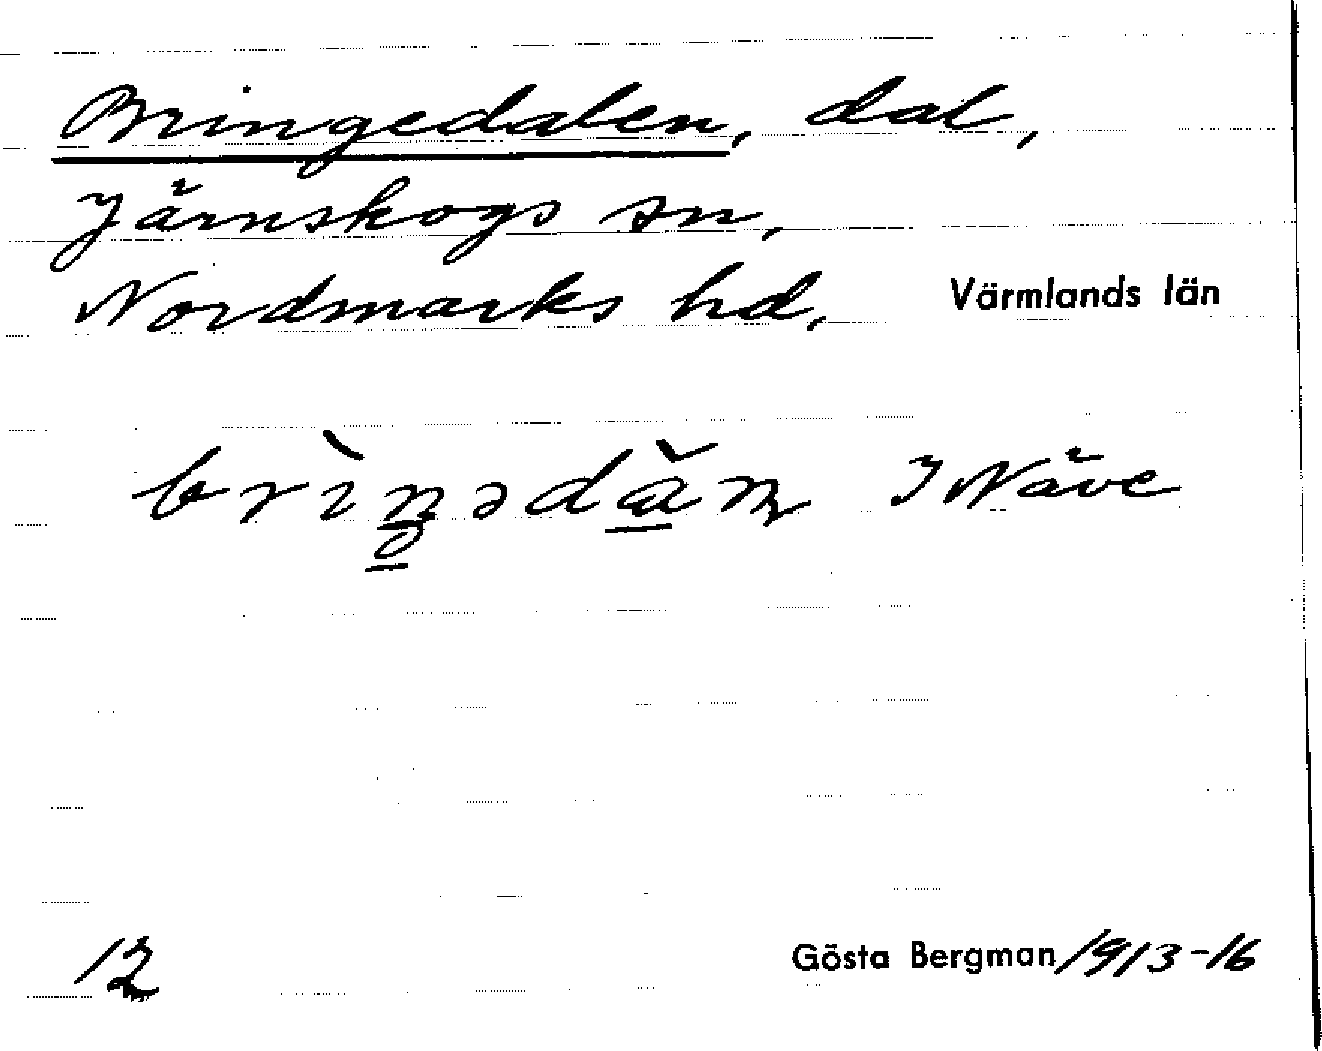 Bringedalen, dal,
Järnskogs sn,
Nordmarks hd, Värmlands län
I Näve
12 Gösta Bergman 1913-16